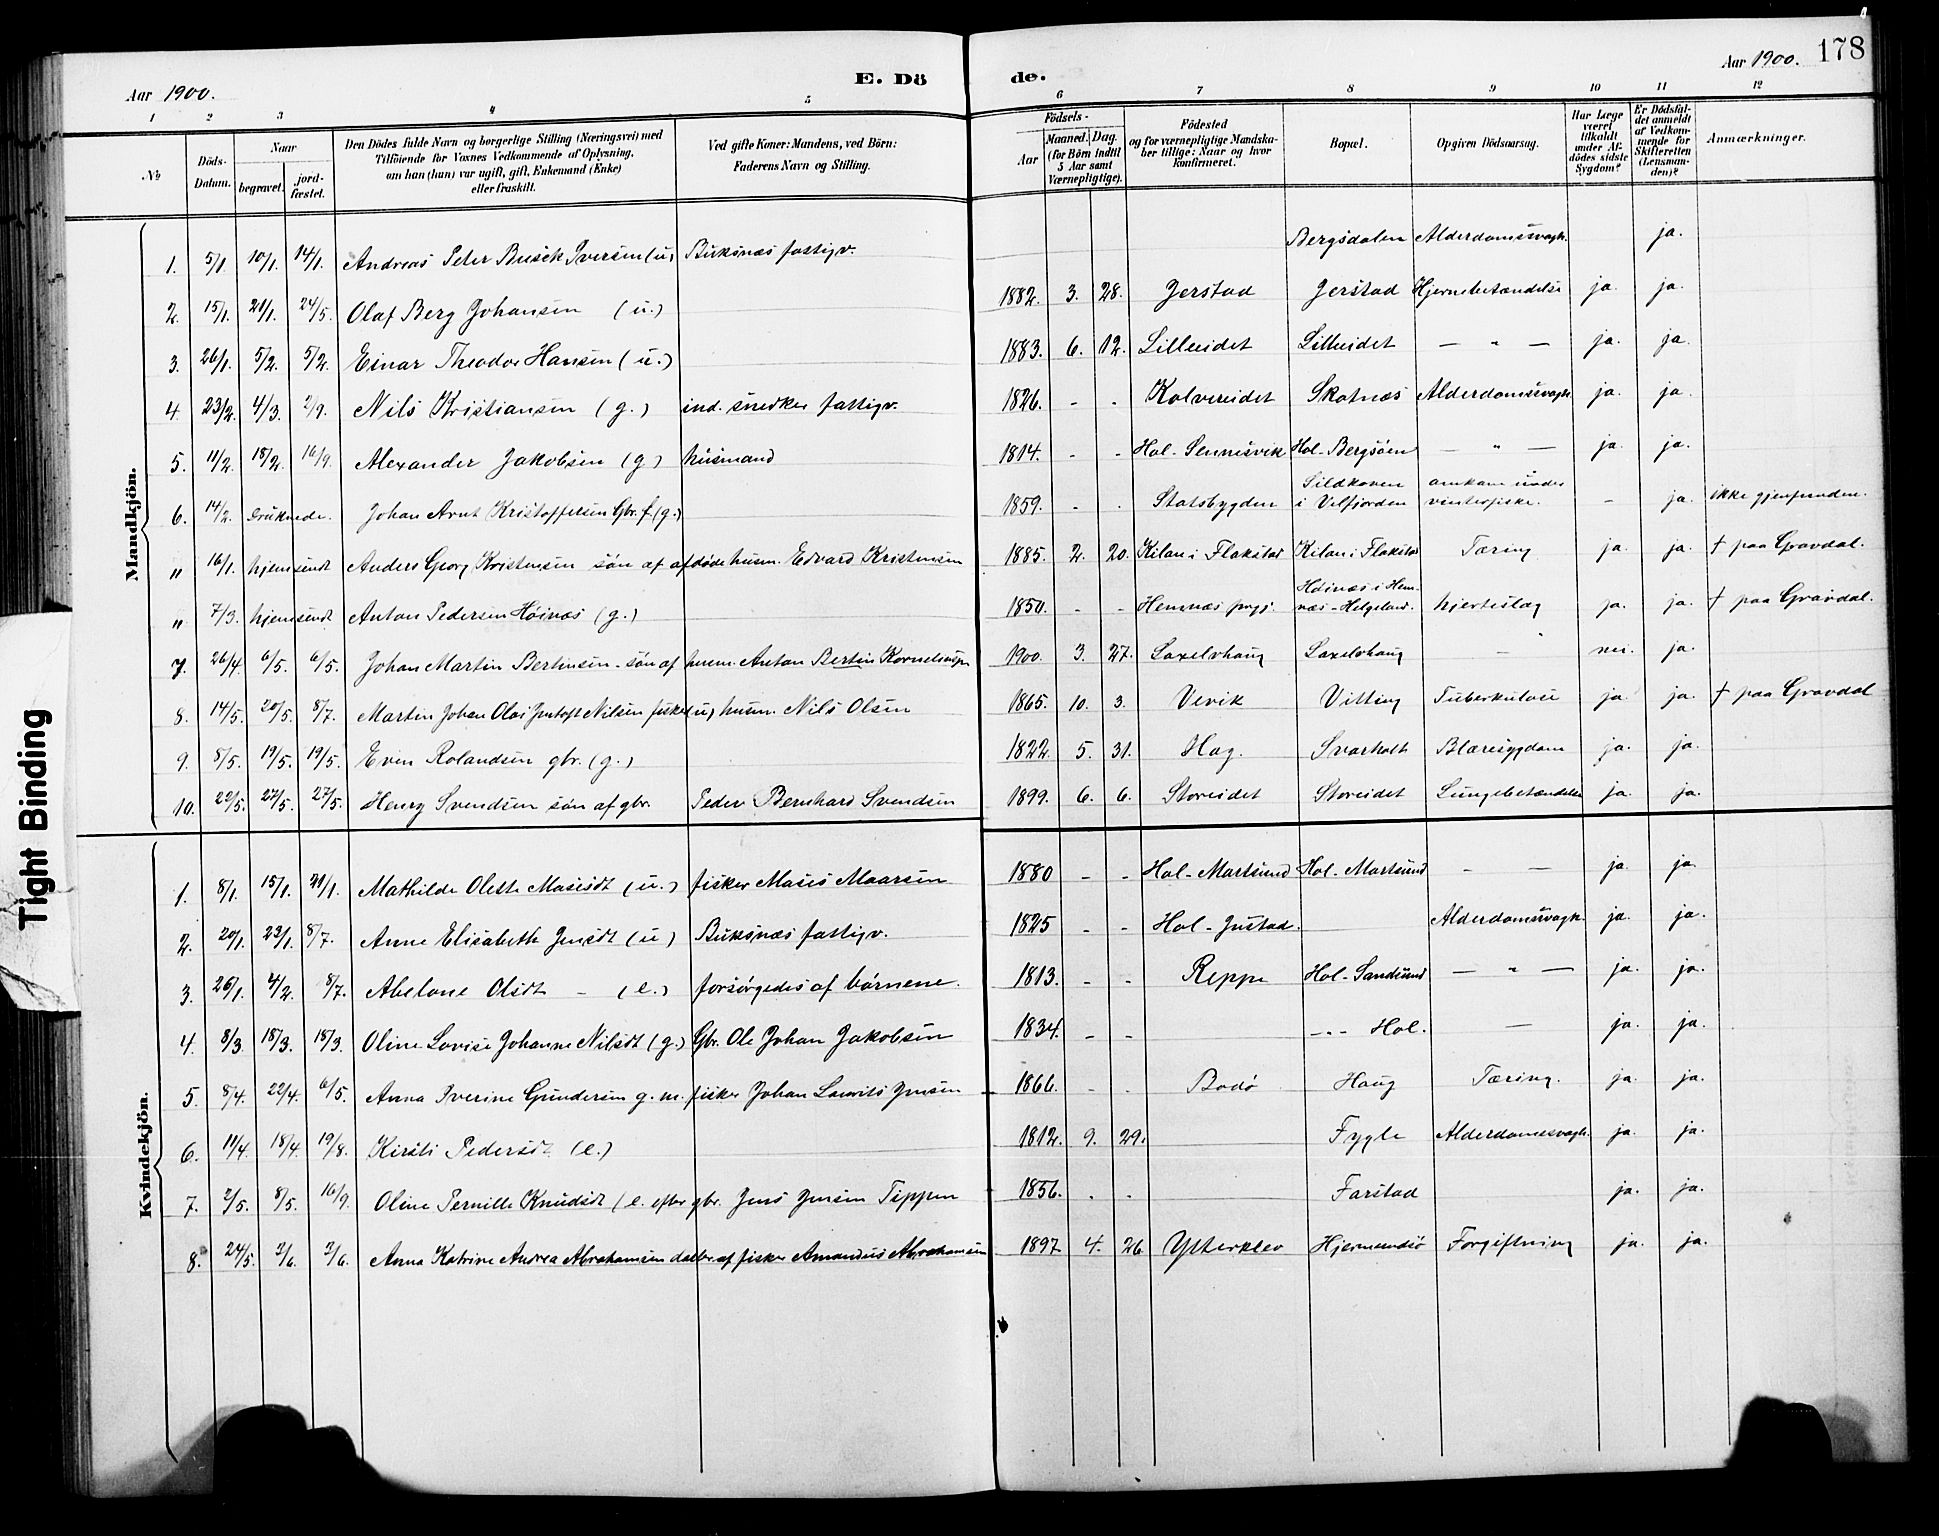 178
Aar 1900.
E. Dö
de.
Aar 1900.
1 2 3 4 5 6 7 8 9 10 11 12
No
Döds-Datum.
Naar
begravet.
jord-fæstet.
Den Dödes fulde Navn og borgerlige Stilling (Næringsvei) med
Tilföiende for Voxnes Vedkommende af Oplysning,
om han (hun) var ugift, gift, Enkemand (Enke)
eller fraskilt.
Ved gifte Koner: Mandens, ved Börn:
Faderens Navn og Stilling.
Födsels-
Aar
Maaned. Dag.
(for Börn indtil
5 Aar samt
Værnepligtige).
Födested
og for værnepligtige Mandska-
ber tillige: Naar og hvor
konfirmeret.
Bopæl.
Opgiven Dödsaarsag.
Har Læge
været
tilkaldt
under Af-
dödes sidste
Sygdom?
Er Dödsfal-
det anmeldt
af Vedkom-
mende for
Skifteretten
(Lensman-
den)?
Anmærkninger.
Mandkjön.
1. 5/1. 10/1. 14/1. Andreas Peter Busck Iversen (u) Buksnæs fattigv. Bergsdalen Alderdomssvagh. ja.
2. 15/1. 21/1. 24/5. Olaf Berg Johansen (u.) 1882. 3. 28. Jerstad Jerstad Hjernebetændelse ja. ja.
3. 26/1. 5/2. 5/2. Einar Theodor Hansen (u.) 1883. 6. 12. Lilleeidet Lilleeidet — " — ja. ja.
4. 23/2. 4/3. 2/9. Nils Kristiansen (g.) ind. snedker fattigv. 1826. - - Kolvereidet Skotnæs Alderdomssvagh. ja. ja.
5. 11/2. 18/2. 16/9. Alexander Jakobsen (g) husmand 1814. - - Hol-Sennesvik Hol-Bergsöen — " — ja. ja.
6. 14/2. druknede. Johan Arnt Kristoffersen Gbr. f (g.) 1859. - . Statsbygden Sildhoven i Velfjorden omkom under vinterfiske. - ja. ikke gjenfunden.
" 16/1. hjemsendt Anders Georg Kristensen sön af afdöde husm. Edvard Kristensen 1885. 2. 20. Kilan i Flakstad Kilan i Flakstad Tæring ja. ja. † paa Gravdal.
" 7/3. hjemsendt Anton Pedersen Höinæs (g.) 1850. - - Hemnæs prgj. Höinæs i Hemnæs-Helgeland. hjerteslag ja. ja. † paa Gravdal.
7. 26/4. 6/5. 6/5. Johan Martin Bertinsen - sön af husm. Anton Bertin Kornelius 1900. 3. 27. Saxelvhaug Saxelvhaug — nei. ja.
8. 14/5. 20/5. 8/7. Martin Johan Olai Nilsen fisker (u) husm. Nils Olsen 1865. 10. 3. Vevik Vitting Tuberkulose ja. ja. † paa Gravdal
9. 8/5. 19/5. 19/5. Even Rolandsen gbr. (g.) 1822. 5. 31. Hag. Svarholt Blæresygdom ja. ja.
10. 22/5. 27/5. 27/5. Henry Svendsen sön af gbr. Peder Bernhard Svendsen 1899. 6. 6. Storeidet Storeidet Lungebetændelse ja. ja.
Kvindekjön.
1. 8/1. 15/1. 21/1. Mathilde Olette Masisdt (u.) fisker Masis Maarsen 1880 - - Hol-Mortsund Hol-Mortsund - — ja. ja.
2. 20/1. 23/1. 8/7. Anne Elisabeth Jensdt (u) Buksnæs fattigv. 1825 - - Hol-Justad. Alderdomssvagh. ja. ja.
3. 26/1. 4/2. 8/7. Abelone Olsdt - (e.) forsörgedes af börnene. 1813. - - Reppe Hol-Sandsund — " — ja. ja.
4. 8/3. 18/3. 18/3. Oline Lovise Johanne Nilsdt (g.) Gbr. Ole Johan Jakobsen 1834. - - --- Hol. — ja. ja.
5. 8/4. 22/4. 6/5. Anna Iverine Gundersen g. m. fisker Johan Laurits Jensen 1866. - - Bodö Haug Tæring. ja. ja.
6. 11/4. 18/4. 19/8. Kirsti Pedersdt (e.) 1812. 9. 29. Fygle Alderdomssvagh. ja. ja.
7. 2/5. 8/5. 16/9. Oline Pernille Knudsdt (e. efter gbr. Jens Jensen Tippen 1856. - - Farstad ja. ja.
8. 24/5. 2/6. 2/6. Anna Katrine Andrea Abrahamsen datter af fisker Amandus Abrahamsen 1897 4. 26 Ytterklev Hjermendsö Forgiftning ja. ja.
Tight Binding